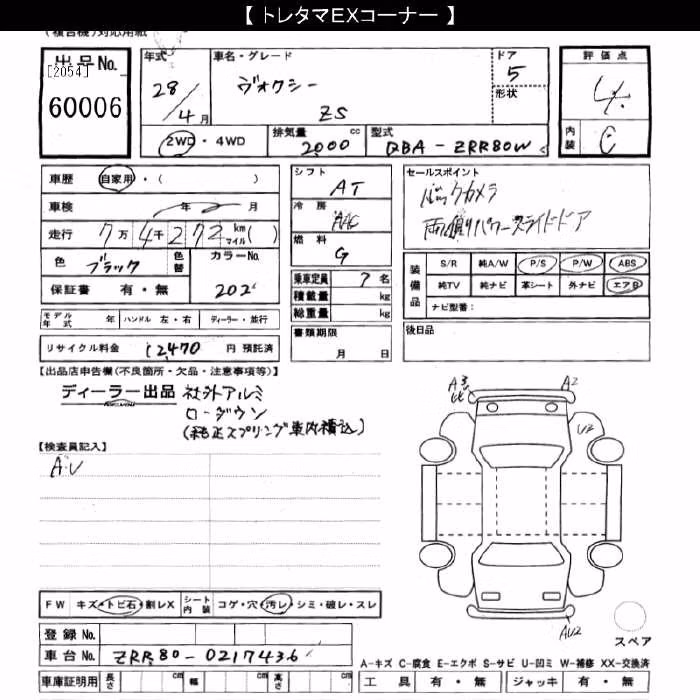 【 トレタマEXコーナー 】
(複合機)対応用紙
出品No.
[2054]
60006
年式
28/4月
車名・グレード
ヴォクシー
ZS
ドア
5
形状
評価点
4
内装
C
2WD・4WD
排気量
2000
cc
型式
DBA - ZRR80W
車歴 自家用・( )
車検 年 月
走行 7万4千272 km マイル( )
色 ブラック 色替 カラーNo. 202
保証書 有・無
モデル年式 年 ハンドル 左・右 ディーラー・並行
リサイクル料金 12470 円 預託済
シフト
AT
冷房
AAC
燃料
G
乗車定員 7 名
積載量 kg
総重量 kg
書類期限
月 日
セールスポイント
バックカメラ
両側パワースライドドア
装備品
S/R 純A/W P/S P/W ABS
純TV 純ナビ 革シート 外ナビ エアB
ナビ型番:
後日品
【出品店申告欄(不良箇所・欠品・注意事項等)】
ディーラー出品 社外アルミ
ローダウン
(純正スプリング車内積込)
【検査員記入】
A・U
A2
U2
AU2
スペア
FW キズ・トビ石・割レX シート内装 コゲ・穴・汚レ・シミ・破レ・スレ
登録No.
車台No. ZRR80-0217436
A-キズ C-腐食 E-エクボ S-サビ U-凹ミ W-補修 XX-交換済
車庫証明用 長さ cm 幅 cm 高さ cm
工具 有・無 ジャッキ 有・無